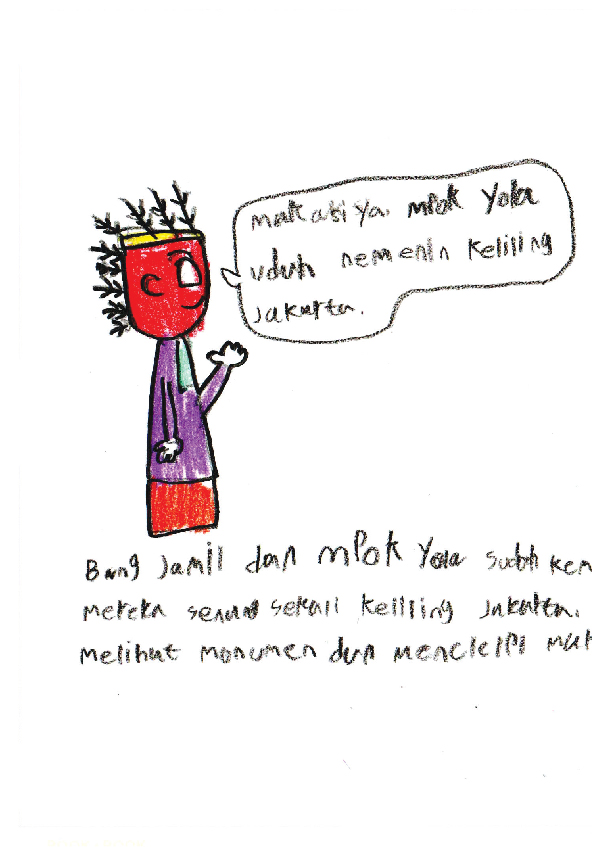 makasi ya, mpok Yola
uduh nemenin keliling
Jakarta.
Bang Jamil dan mpok Yola sudah kem
mereka senang sekali keliling Jakarta.
melihat monumen dan mencicipi mak